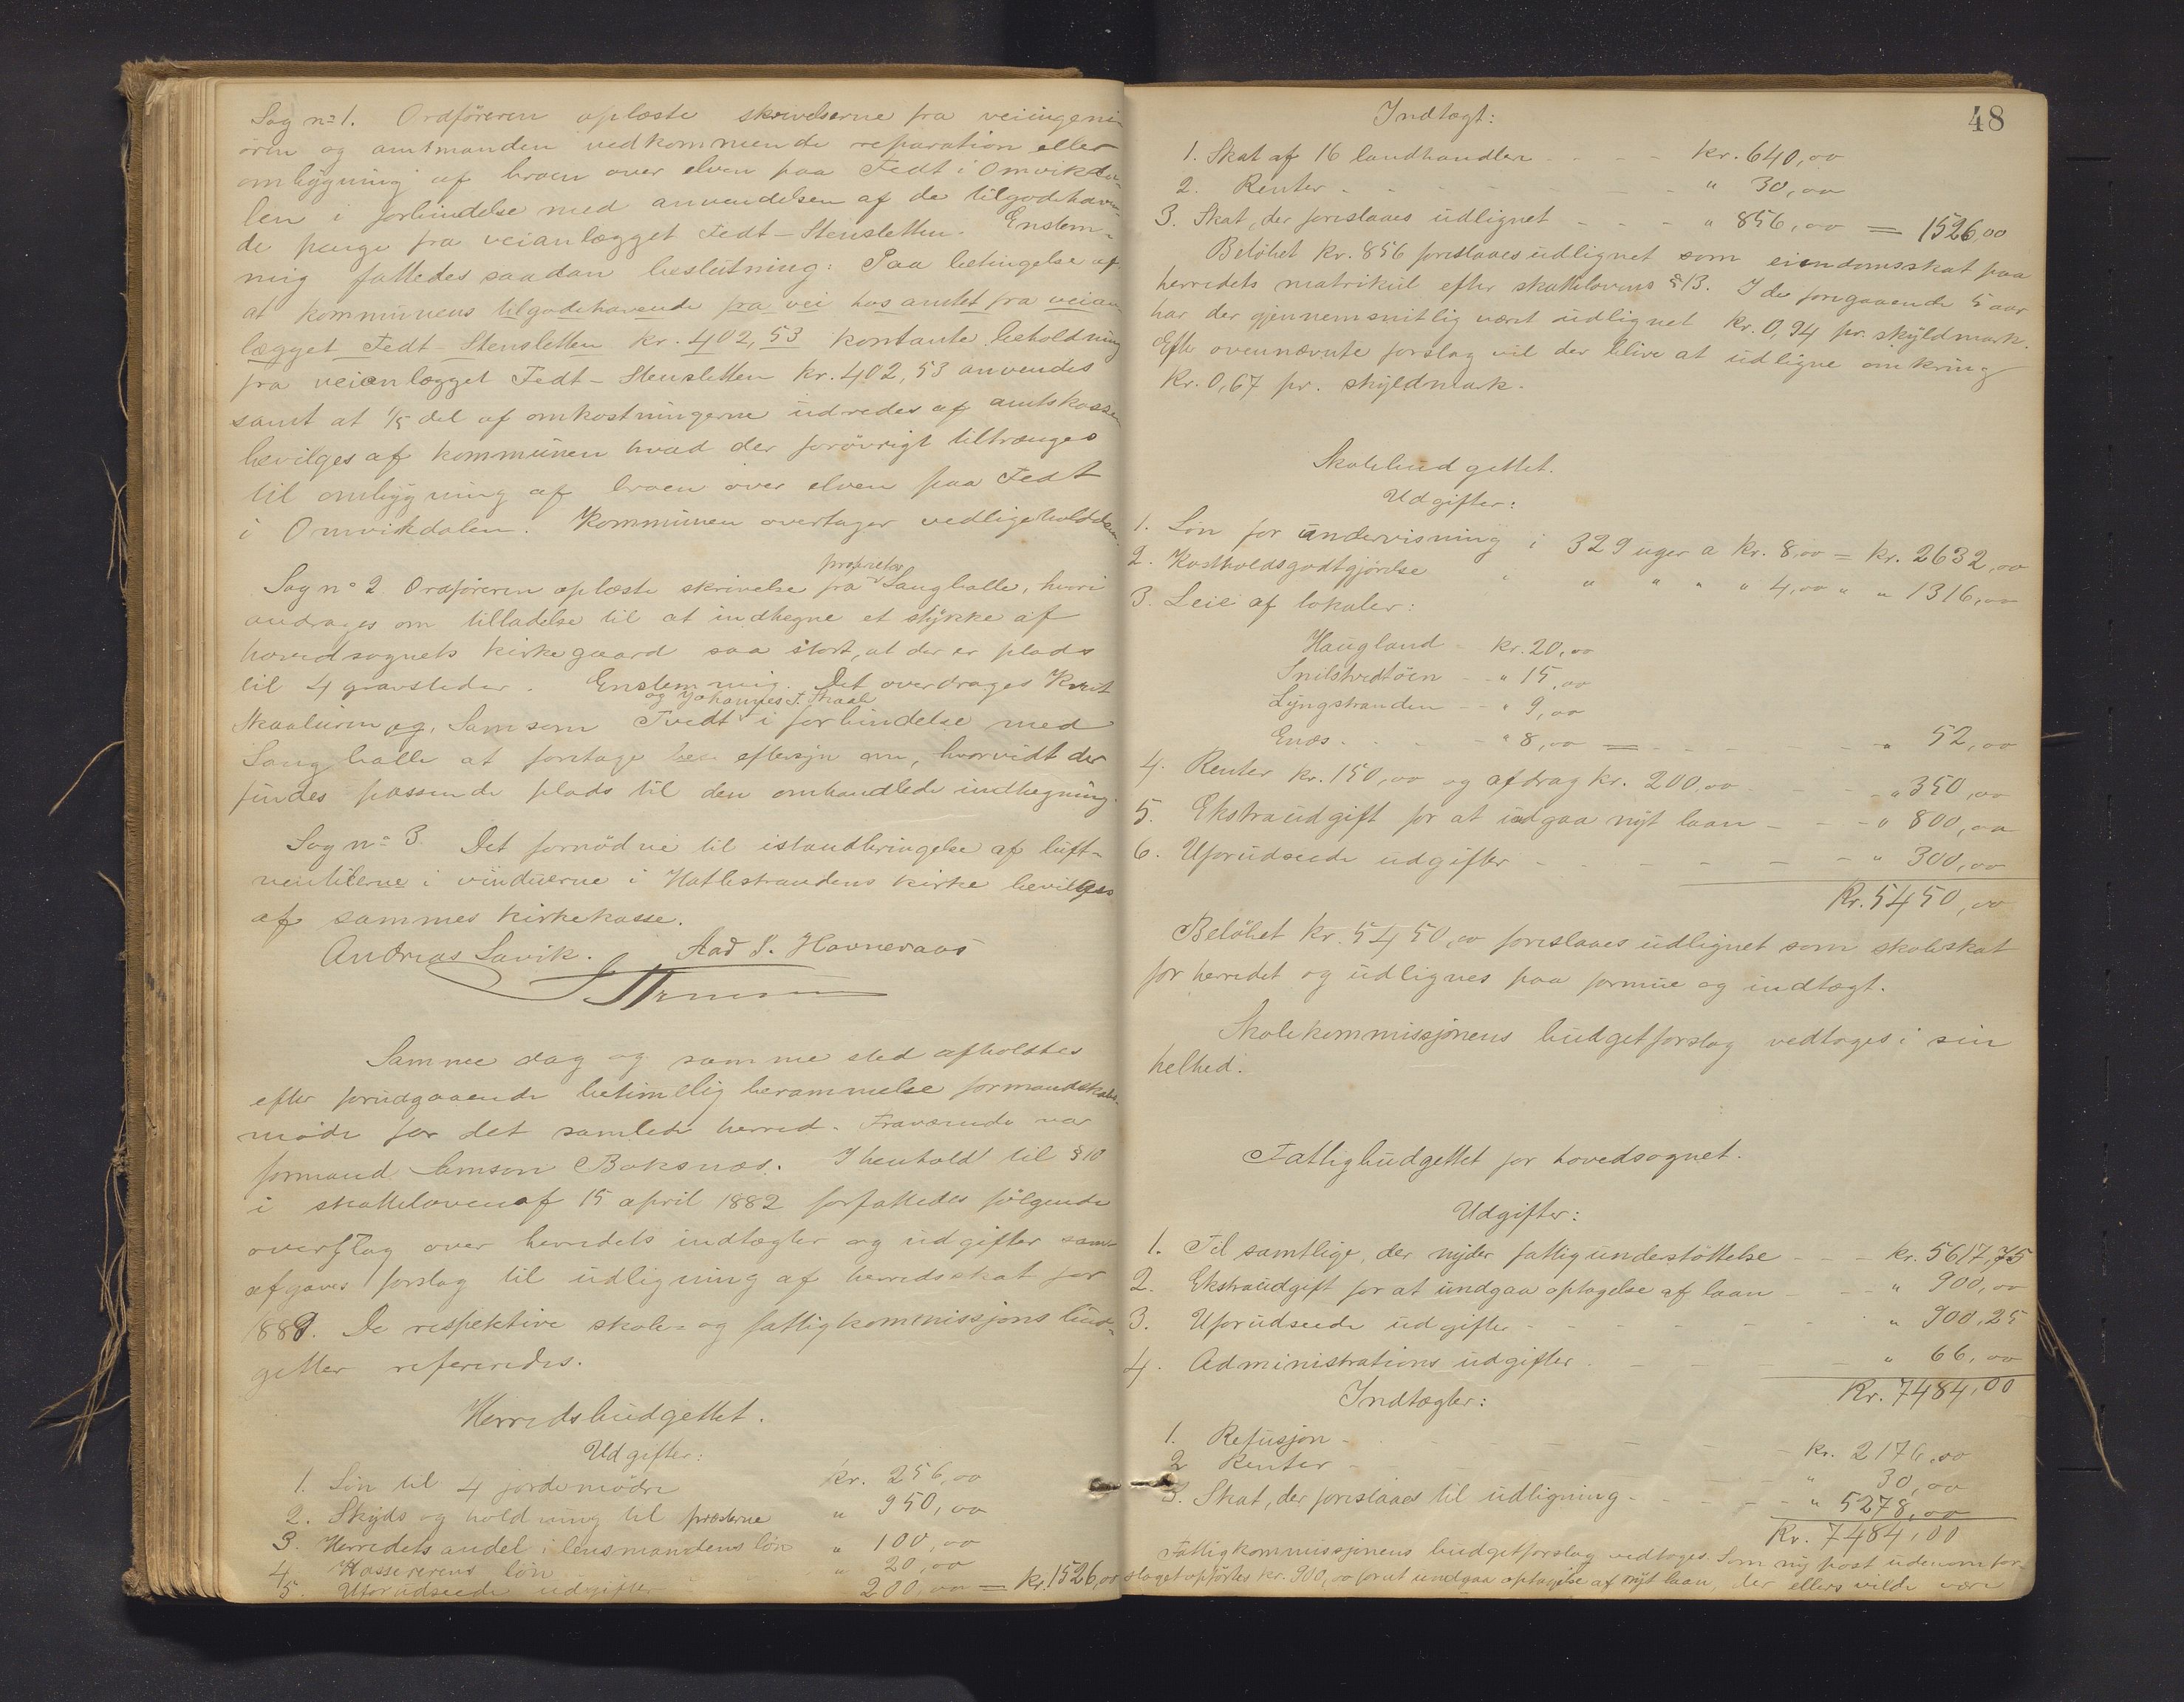 Sag no 1. Ordföreren oplæste skrivelserne fra veiingeni-
ören og amtmanden vedkommende reparation eller
ombygning af broen over elven paa Tedt i Omvikda-
len i forbindelse med anvendelsen af de tilgodehaven-
de penge fra veianlægget Tedt-Stensletten. Enstem-
mig fattedes saadan beslutning: Paa betingelse af
at kommunens tilgodehavende fra vei hos amtet fra veian-
lægget Tedt-Stensletten kr. 402,53 kontante beholdning
fra veianlægget Tedt-Stensletten kr. 402,53 anvendes
samt at 1/5 del af omkostningerne udredes af amtskassen
bevilges af kommunen hvad der forövrigt tiltrænges
til ombygning af broen over elven paa Tedt
i Omvikdalen. Kommunen overtager vedligeholdelsen.
Sag no 2. Ordföreren oplæste skrivelse fra proprietær Sanghalle, hvori
andrages om tilladelse til at indhegne et stykke af
hovedsognets kirkegaard saa stort, at der er plads
til 4 gravsteder. Enstemmig. Det overdrages Knut
og Johannes T. Skaale
Skaaluren og Samson Tvedt i forbindelse med
Sanghalle at foretage eftersyn om, hvorvidt der
findes passende plads til den omhandlede indhegning.
Sag no 3. Det fornödne til istandbringelse af luft-
ventilerne i vinduerne i Hatlestrandens kirke bevilges
af sammes kirkekasse.
Andreas Lavik. Aad S. Havneraas
Samme dag og samme sted afholdtes
efter forudgaaende betimelig berammelse formandskabs-
möde for det samlede herred. Fraværende var
formand Samson Baksnæs. I henhold til § 10
i skatteloven af 15 april 1882 forfattedes fölgende
overslag over herredets indtægter og udgifter samt
afgaves forslag til udligning af herredsskat for
1889. De respektive skole- og fattigkommissjons bud-
getter refereredes.
Herredsbudgettet.
Udgifter:
1. Lön til 4 jordemödre kr. 256,00
2. Skyds og holdning til præsterne " 950,00
3. Herredets andel i lensmandens lön " 100,00
4. Kassererens lön " 20,00
5. Uforudseede udgifter 200,00 = kr. 1526,00
48
Indtægt:
1. Skat af 16 landhandlere - - - kr. 640,00
2. Renter - - - - - - " 30,00
3. Skat, der foreslaaes udlignet - - - " 856,00 = 1526,00
Belöbet kr. 856 foreslaaes udlignet som eiendomsskat paa
herredets matrikul efter skattelovens § 13. I de foregaaende 5 aar
har der gjennemsnitlig været udlignet kr. 0,94 pr. skyldmark.
Efter ovennævnte forslag vil der blive at udligne omkring
kr. 0,67 pr. skyldmark.
Skolebudgettet.
Udgifter:
1. Lön for undervisning i 329 uger a kr. 8,00 = kr. 2632,00
2. Kostholdsgodtgjörelse " " " " " 4,00 " " 1316,00
3. Leie af lokaler:
Haugland - kr. 20,00
Snilstvedtöen - - " 15,00
Lyngstranden - - " 9,00
Enæs - - - - " 8,00 = - - - - - " 52,00
4. Renter kr. 150,00 og afdrag kr. 200,00 - - - " 350,00
5. Ekstraudgift for at undgaa nyt laan - - - " 800,00
6. Uforudseede udgifter - - - - - - " 300,00
Kr. 5450,00
Belöbet kr. 5450,00 foreslaaes udlignet som skoleskat
for herredet og udlignes paa formue og indtægt.
Skolekommissjonens budgetforslag vedtoges i sin
helhed.
Fattigbudgettet for hovedsognet.
Udgifter:
1. Til samtlige, der nyder fattigunderstöttelse - - - kr. 5617,75
2. Ekstraudgift for at undgaa optagelse af laan - - - " 900,00
3. Uforudseede udgifter - - - - - - " 900,25
4. Administrations udgifter - - - " 66,00
Kr. 7484,00
Indtægter:
1. Refusjon - - - - - - - kr. 2176,00
2 Renter - - - - - - - " 30,00
3. Skat, der foreslaaes til udligning - - - - " 5278,00
Kr. 7484,00
Fattigkommissjonens budgetforslag vedtoges. Som ny post udenom for-
slaget opförtes kr. 900,00 for at undgaa optagelse af nyt laan, der ellers vilde være